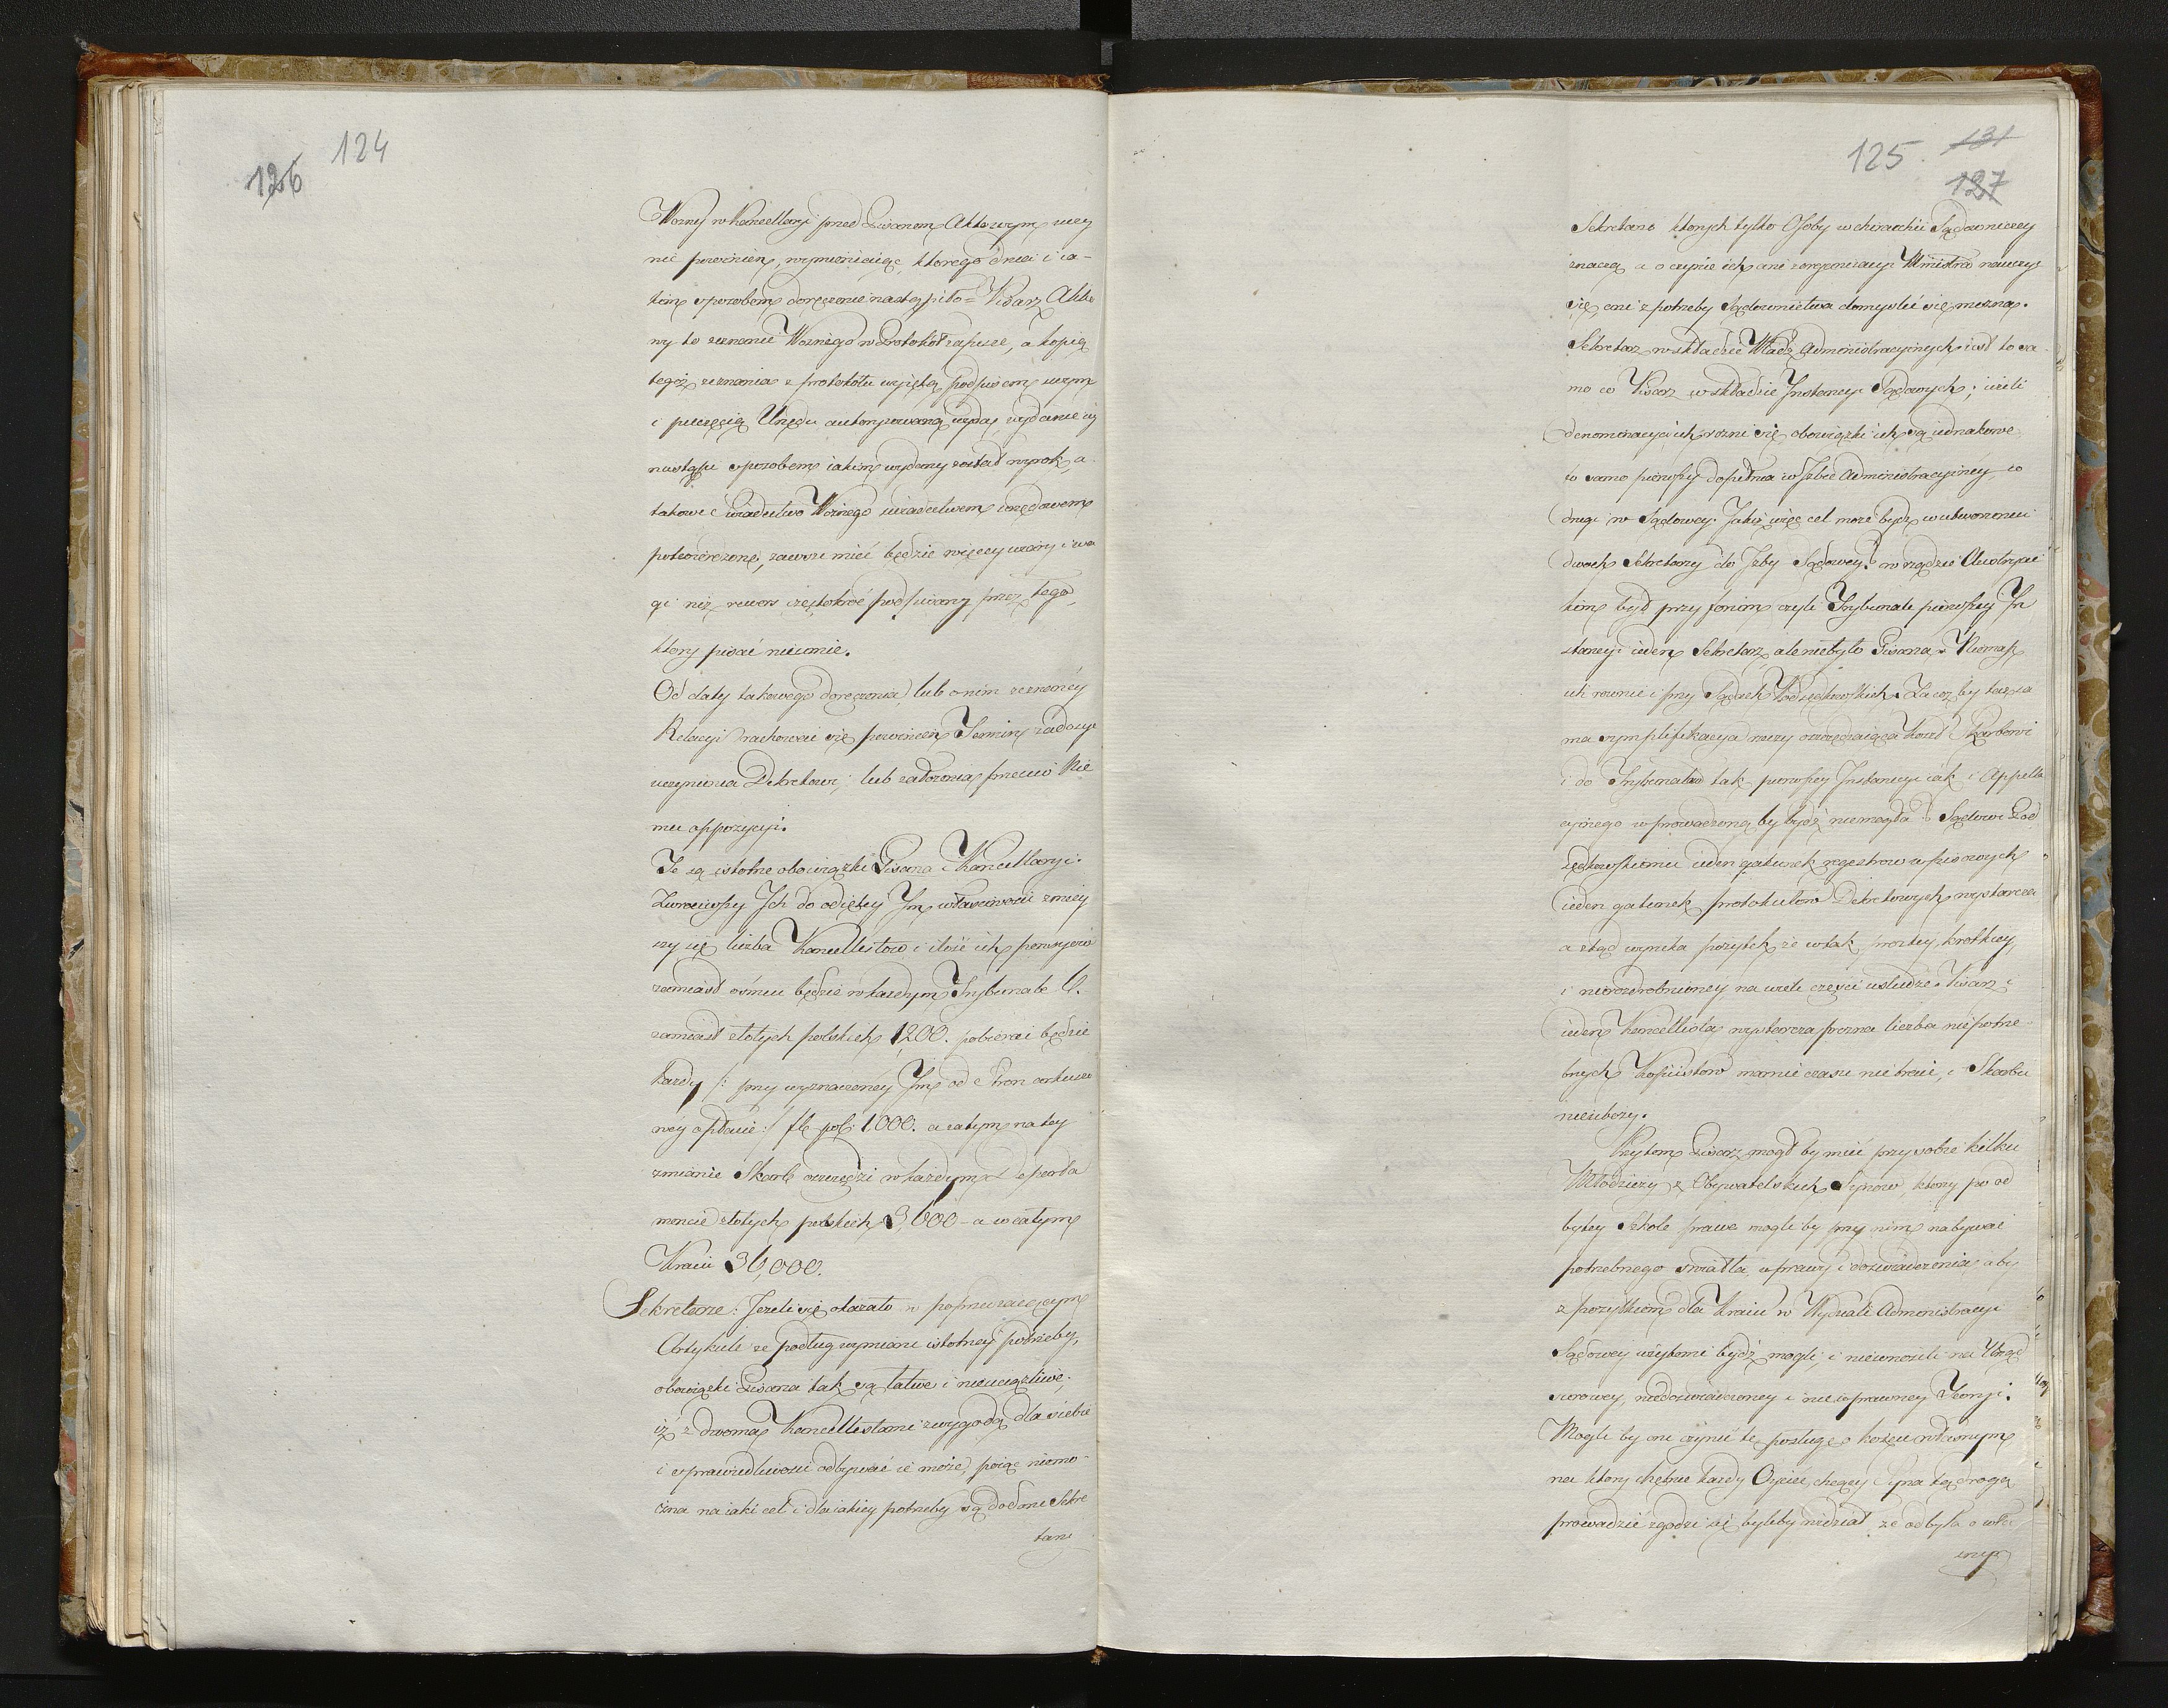 124
126
Woźny w Kancellaryi przed Pisarzem Aktowym uczy
nić powinien, wymieniaiąc, ktorego dnia i ia-
kim sposobem doręczenie nastąpiło = Pisarz Akto
wy to zeznanie Woźnego w Protokół zapisze, a kopią
tegoż zeznania z protokołu wyiętą, podpisem swym
i pieczęcią Urzędu autoryzowaną wyda, wydanie iey
nastąpi sposobem iakim wydany został wyrok, a
takowe świadectwo Woźnego świadectwem urzędowem
potwierdzone, zawsze mieć będzie więcey wiary i wa
gi niż rewers częstokroć podpisany przez tego,
ktory pisać nieumie.
Od daty takowego doręczenia, lub o nim zeznaney
Relacyi rachować się powinien Termin zadosyc
uczynienia Dekretowi, lub założenia przeciw Nie
mu oppozycyi.
Te są istotne obowiązki Pisarza i Kancellaryi.
Zwrociwszy Ich do odiętey Im właściwości zmniey
szy się liczba Kancellistow i ilość ich pensyiów
zamiast ośmiu będzie w każdym Trybunale 6.
zamiast złotych polskich 1200. pobierać będzie
każdy /: przy wyznaczoney Im od Stron arkuszo
wey opłacie :/ fl. pol: 1000. a zatym na tey
zmianie Skarb oszczędzi w każdym Departa
mencie złotych polskich 3,600 - a w całym
Kraiu 36,000.
Sekretarze: Jeżeli się okazało w poprzedzaiącym
Artykule że podług wymiaru istotney potrzeby,
obowiązki Pisarza tak są łatwe i nieuciążliwe,
iż z dwoma Kancellistami z wygodą dla siebie
i sprawiedliwości odbywać ie może, poiąc niemo-
żna na iaki cel i dla iakiey potrzeby są dodani Sekre
tarze
125
131
127
Sekretarze ktorych tylko Osoby w chirarchii Sądowniczey
znaczą a o czynie ich ani z organizacyi Ministra nauczyć
się, ani z potrzeby Sądownictwa domyslić się można.
Sekretarz w składzie Władz Administracyinych iest to sa
mo co Pisarz w składzie Instancyi Sądowych; ieżeli
denominacyia ich rożni się obowiązki ich są iednakowe
to samo pierwszy dopełnia w Izbie Administracyiney co
drugi w Sądowey. Jakiż więc cel może bydz w utworzeniu
dwoch Sekretarzy do Izby Sądowey? w rządzie Austryac
kim był przy forum czyli Trybunale pierwszey In
stancyi ieden Sekretarz, ale niebyło Pisarza. Niemasz
ich rownie i przy Sądach Podsędkowskich. Za coż by taż sa
ma symplifikacyia rzeczy oszczędzaiąca koszt Skarbowi
i do Trybunałow tak pierwszey Instancyi iak i Appella
cyinego wprowadzoną by bydz niemogła? Sądowi Pod
sędkowskiemu ieden gatunek regestrow wpisowych
ieden gatunek protokułow Dekretowych wystarcza
a ztąd wynika pożytek że w tak prostey, krotkiey,
i nierozdrobnioney na wiele części usłudze Pisarz i
ieden Kancellista wystarcza, prożna liczba niepotrze
bnych Kopistow marnie czasu nie traci, i Skarbu
nieuboży.
Przytem Pisarz mogł by mieć przy sobie kilku
Młodzieży z Obywatelskich Synow, ktorzy po od
bytey Szkole prawa mogli by przy nim nabywać
potrzebnego światła, wprawy i doświadczenia aby
z pożytkiem dla kraiu w Wydziale Administracyi
Sądowey użytemi bydz mogli, i niewnosili na Urząd
surowey, niedoświadczoney i niewprawney Teoryi.
Mogli by oni czynić tę posługę o koszcie własnym
na ktory chętnie każdy Oyciec, chcący Syna tą drogą
prowadzić zgodzi się byleby wiedział, że odbyta o wła
snym